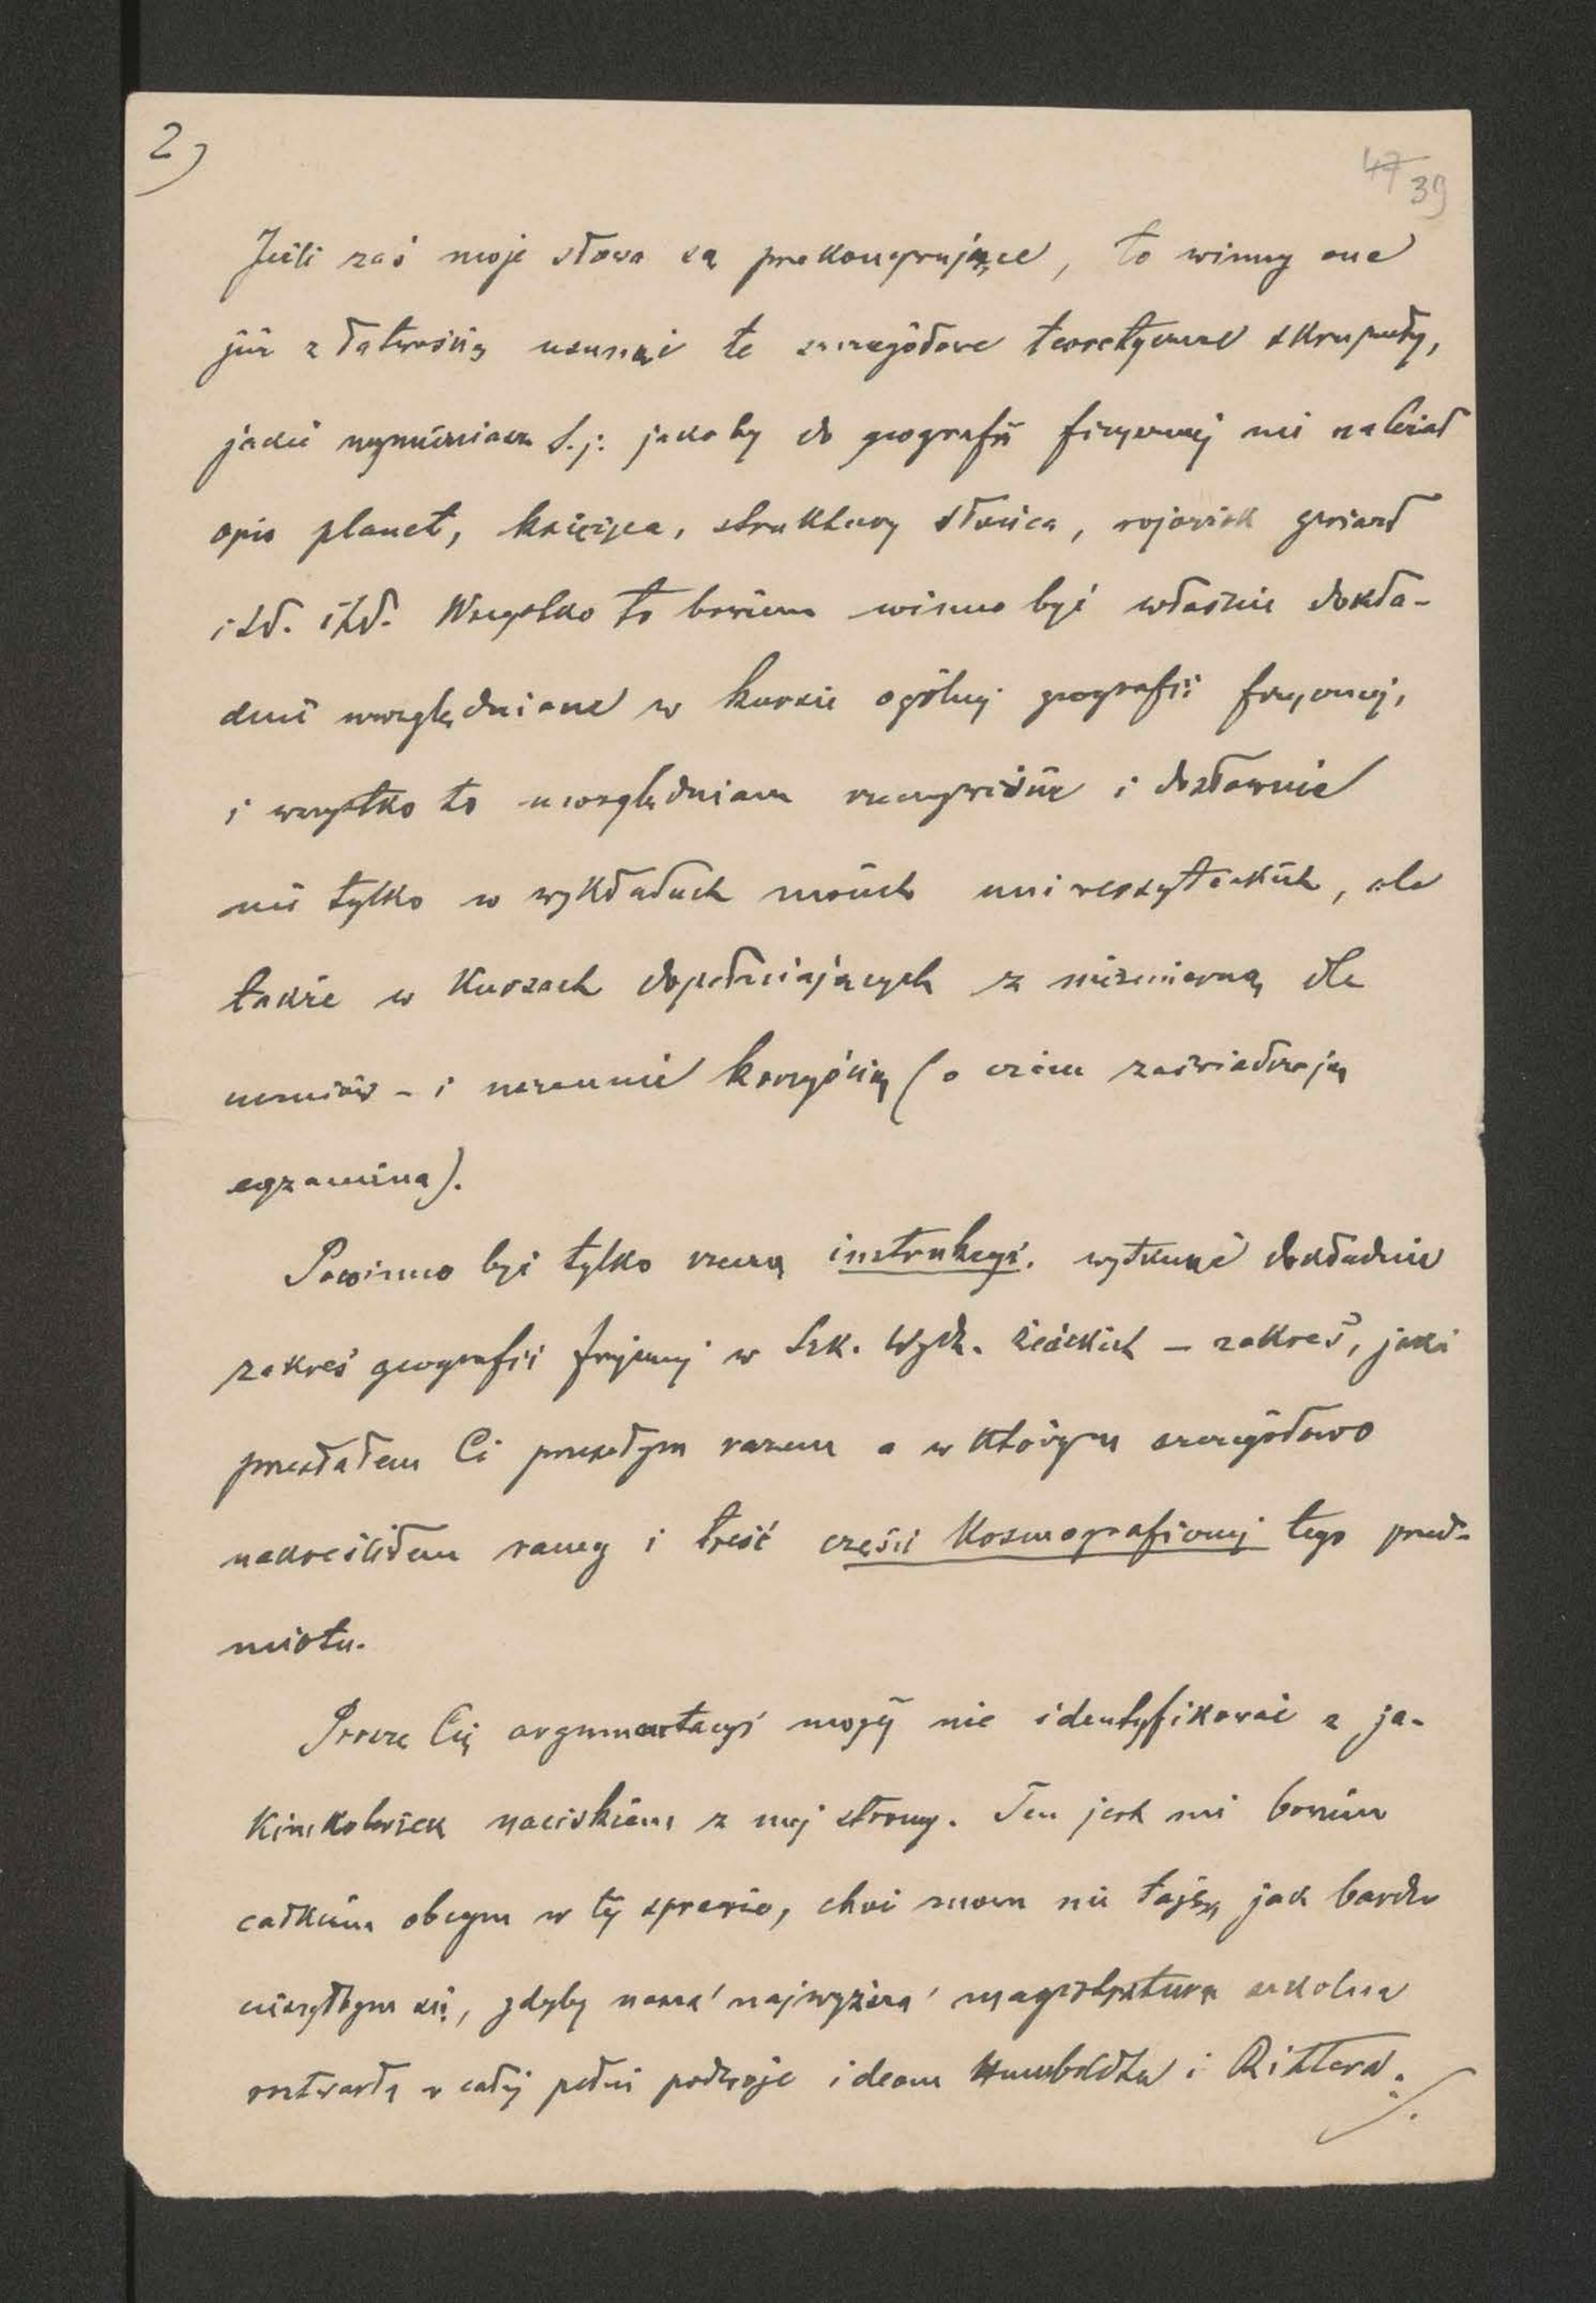 2)
47 39
Jeśli zaś moje słowa są przekonywujące, to winny one
już z łatwością usunąć te szczegółowe teoretyczne skrupuły,
jakie wymieniasz t.j: jakoby do geografii fizycznej nie należał
opis planet, księżyca, struktury słońca, rojowisk gwiazd
itd. itd. Wszystko to bowiem winno być właśnie dokła-
dnie uwzględniane w kursie ogólnej geografii fizycznej,
i wszystko to uwzględniam rzeczywiście i dosłownie
nie tylko w wykładach moich uniwersyteckich, ale
także w kursach dopełniających z niezmierną dla
uczniów – i uczennic korzyścią (o czem zaświadczają
egzamina).
Powinno być tylko rzeczą instrukcyi, wytknąć dokładnie
zakres geografii fizycznej w Szk. Wydz. żeńskich – zakres, jaki
przesłałem Ci przeszłym razem a w którym szczegółowo
nakreśliłem ramy i treść części kosmograficznej tego przed-
miotu.
Proszę Cię argumentacyi mojej nie identyfikować z ja-
kimkolwiek naciskiem z mej strony. Ten jest mi bowiem
całkiem obcym w tej sprawie, choć znowu nie taję, jak bardzo
cieszyłbym się, gdyby nasza najwyższa magistratura szkolna
roztwarła w całej pełni podwoje ideom Humboldta i Rittera.